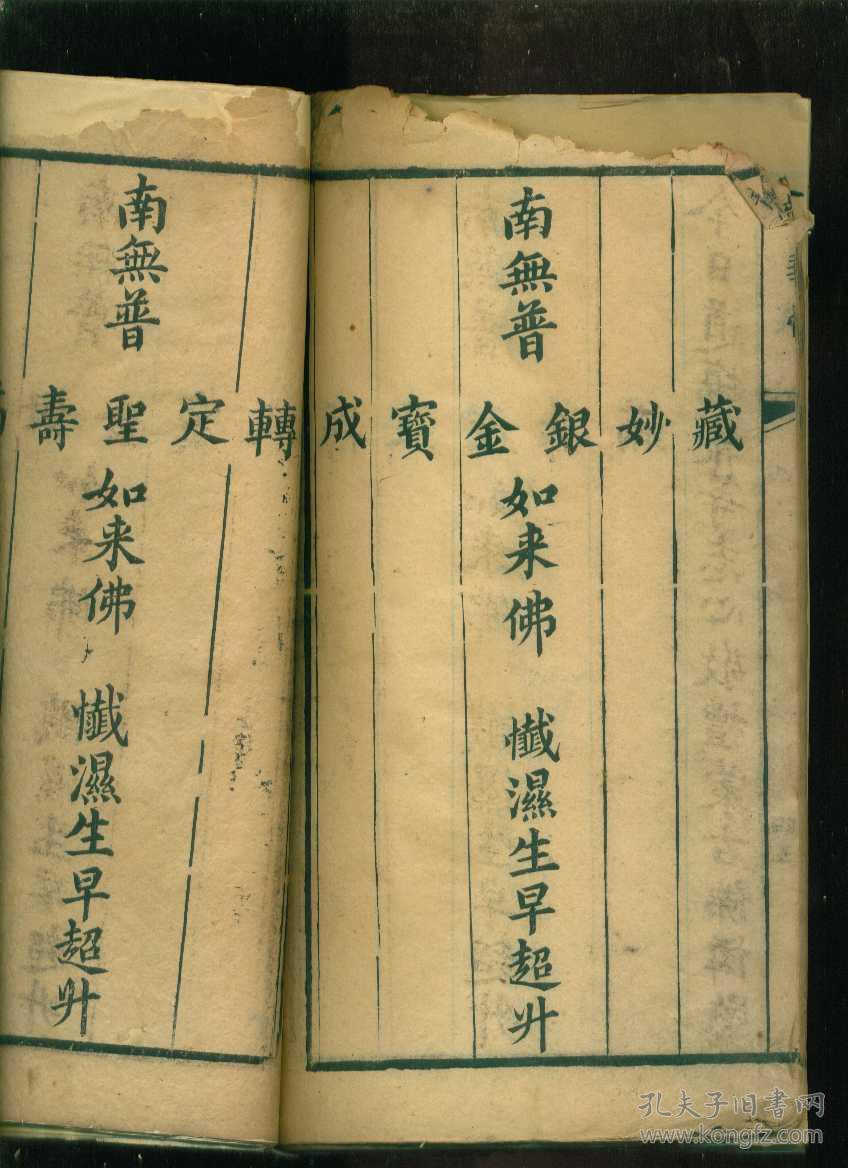 南無普
藏
妙
銀
金
寶
成
如来佛 懺濕生早超升
南無普
轉
定
聖
壽
如来佛 懺濕生早超升
孔夫子旧书网
www.kongfz.com